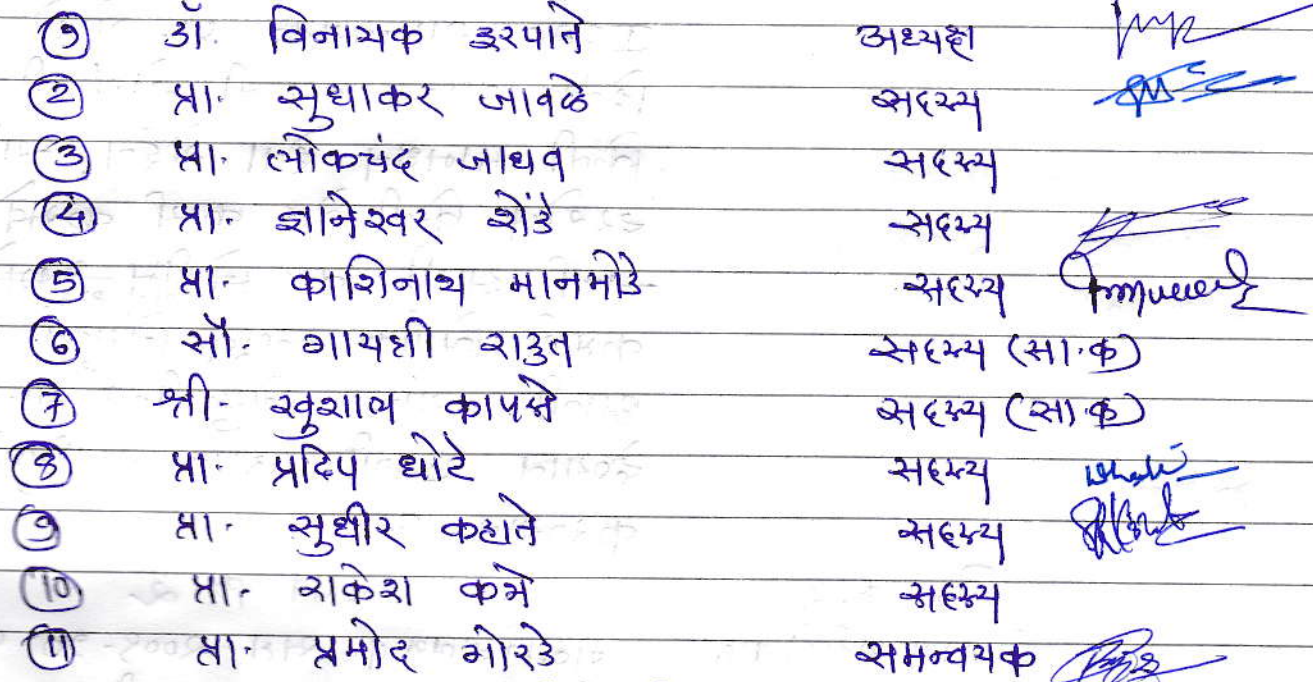 १ डॉ. विनायक इरपाते अध्यक्ष
2 प्रा. सुधाकर जावळे सदस्य
3 प्रा. लोकचंद जाधव सदस्य
4 प्रा. ज्ञानेश्वर शेंडे सदस्य
5 प्रा. काशिनाथ मानमोडे सदस्य
6 सौ. गायत्री राऊत सदस्य (सा.क)
7 श्री. खुशाल कापसे सदस्य (सा.क)
8 प्रा. प्रदिप धोटे सदस्य
9 प्रा. सुधीर कहाते सदस्य
10 प्रा. राकेश कभे सदस्य
11 प्रा. प्रमोद गोरडे समन्वयक